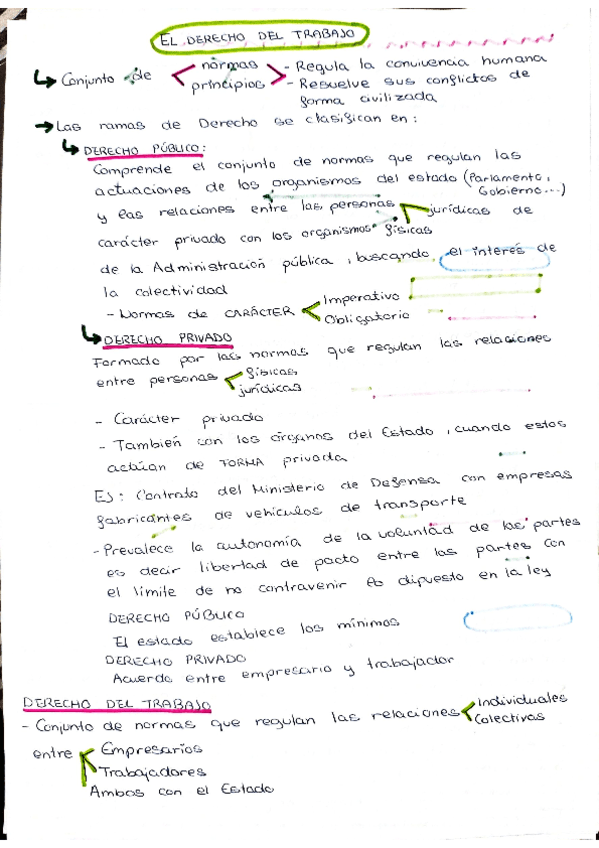 EL DERECHO DEL TRABAJO
Conjunto de normas principios
- Regula la convivencia humana
- Resuelve sus conflictos de
forma civilizada
Las ramas de Derecho se clasifican en:
DERECHO PÚBLICO:
Comprende el conjunto de normas que regulan las
actuaciones de los organismos del estado (Parlamento,
Gobierno...)
y las relaciones entre las personas jurídicas de
físicas
carácter privado con los organismos
de la Administración pública, buscando el interés de
la colectividad
- Normas de CARÁCTER Imperativo
Obligatorio
DERECHO PRIVADO
Formado por las normas que regulan las relaciones
entre personas físicas
jurídicas
- Carácter privado
- También con los órganos del Estado, cuando estos
actúan de FORMA privada
EJ: Contrato del Ministerio de Defensa con empresas
fabricantes de vehículos de transporte
- Prevalece la autonomía de la voluntad de las partes
es decir libertad de pacto entre las partes con
el límite de no contravenir lo dipuesto en la ley
DERECHO PÚBLICO
El estado establece los mínimos
DERECHO PRIVADO
Acuerdo entre empresario y trabajador
DERECHO DEL TRABAJO
- Conjunto de normas que regulan las relaciones Individuales
Colectivas
entre Empresarios
Trabajadores
Ambos con el Estado